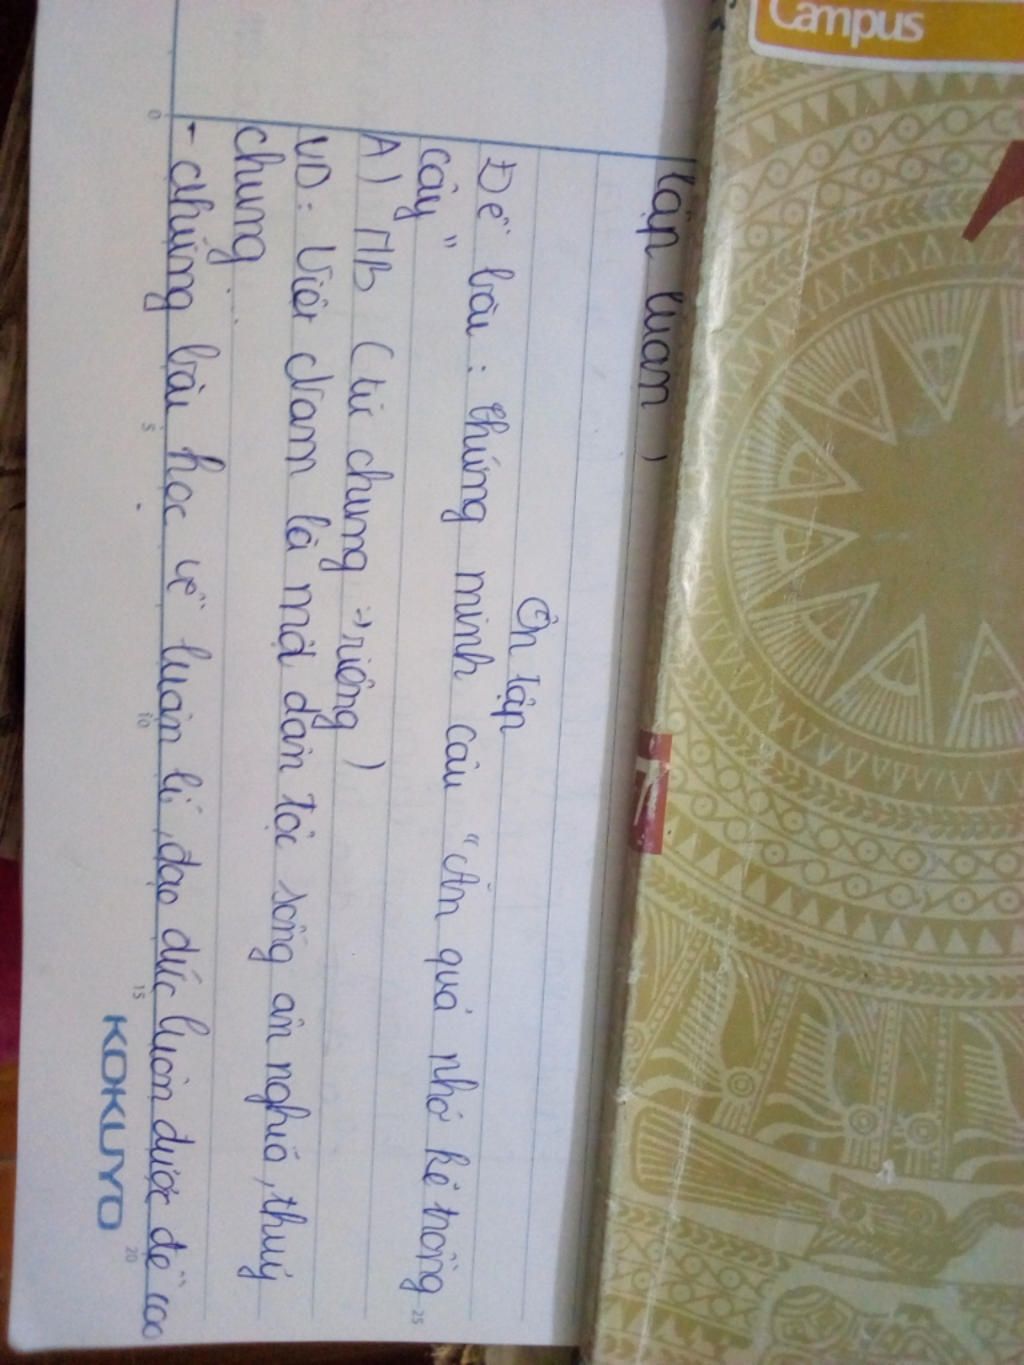 lập luận)
Ôn tập
Đề bài: Chứng minh câu "Ăn quả nhớ kẻ trồng
cây"
A) MB (từ chung => riêng)
VD: Việt Nam là một dân tộc sống ân nghĩa, thuỷ
chung...
- Những bài học về luân lí, đạo đức luôn được đề cao
KOKUYO
Campus
0 5 10 15 20 25
7